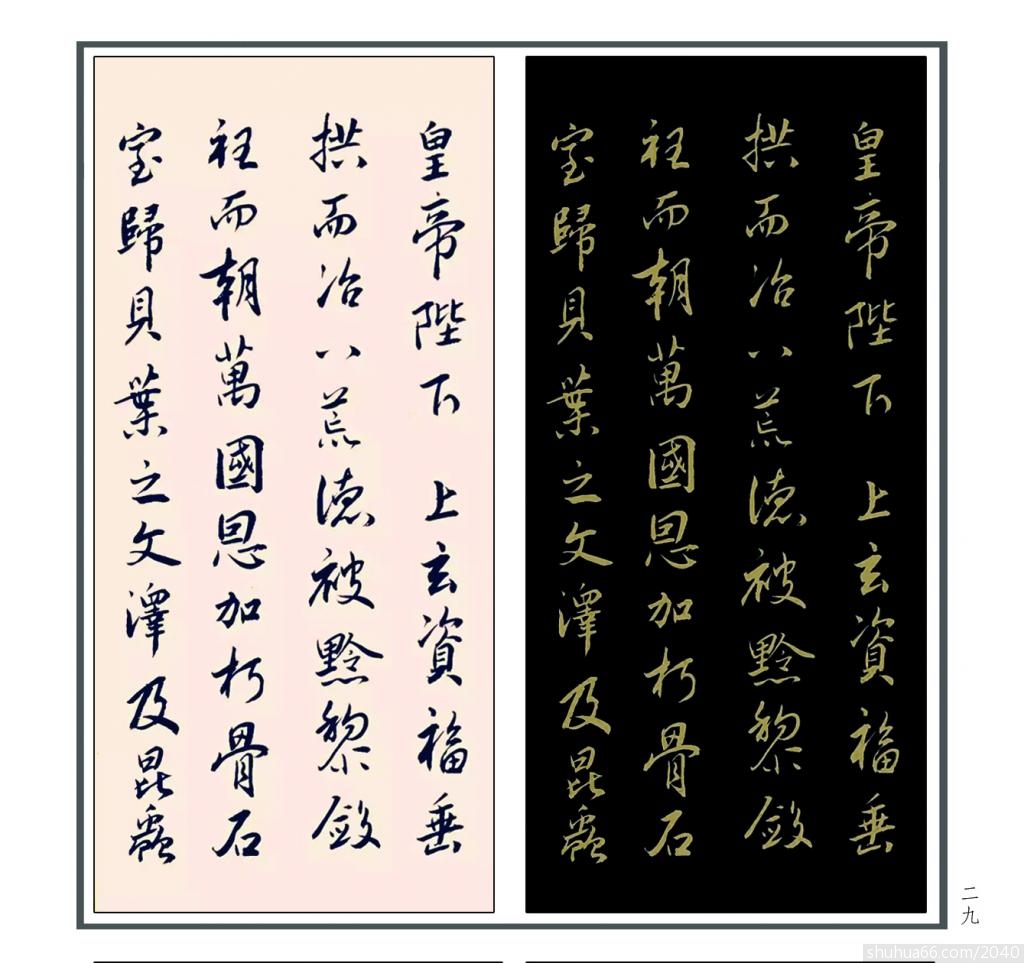 皇帝陛下 上玄資福垂
拱而治八荒德被黔黎斂
衽而朝萬國恩加朽骨石
室歸貝葉之文澤及昆蟲
皇帝陛下 上玄資福垂
拱而治八荒德被黔黎斂
衽而朝萬國恩加朽骨石
室歸貝葉之文澤及昆蟲
二九
shuhua66.com/2040